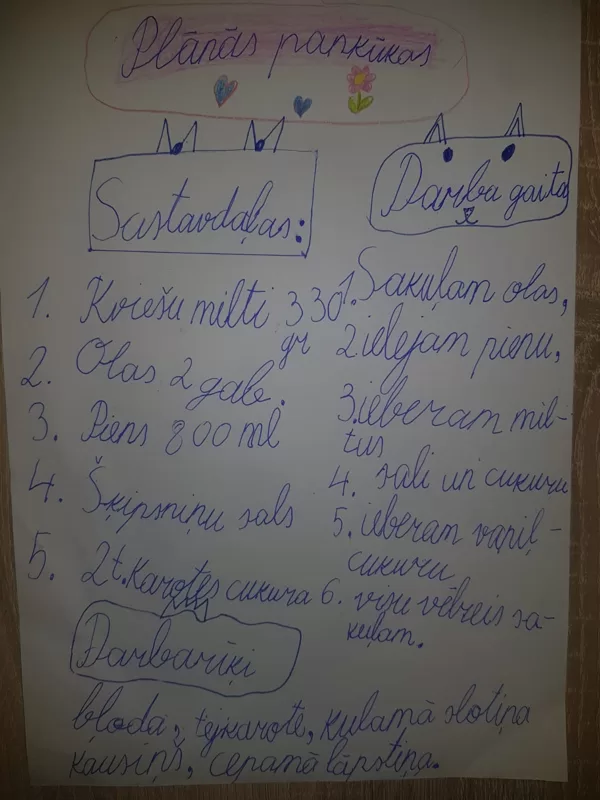 Plānās pankūkas
Sastavdaļas:
1. Kviešu milti 330
gr
2. Olas 2 gab.
3. Piens 800 ml
4. Šķipsniņu sals
5. 2t. Karotes cukura
Darba gaita
1. Sakuļam olas,
2 ielejam pienu,
3. ieberam mil-
tus
4. sali un cukuru
5. ieberam vaņiļ-
cukuru
6. visu vēlreis sa-
kuļam.
Darbariķi
bļoda, tējkarote, kuļamā slotiņa
kausiņš, cepamā lāpstiņa.